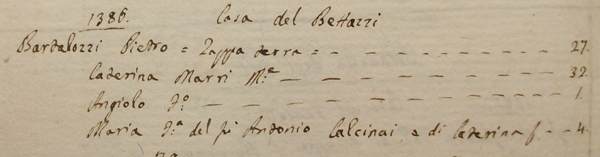 1386. Casa del Bettazzi
Bardalozzi Pietro = Zappa terra = - - - - - - - - - 27.
Caterina Marri M.e - - - - - - - - - - 32.
Angiolo F.o - - - - - - - - - - - 1.
Maria F.a del fu Antonio Calcinai e di Caterina - - 4.